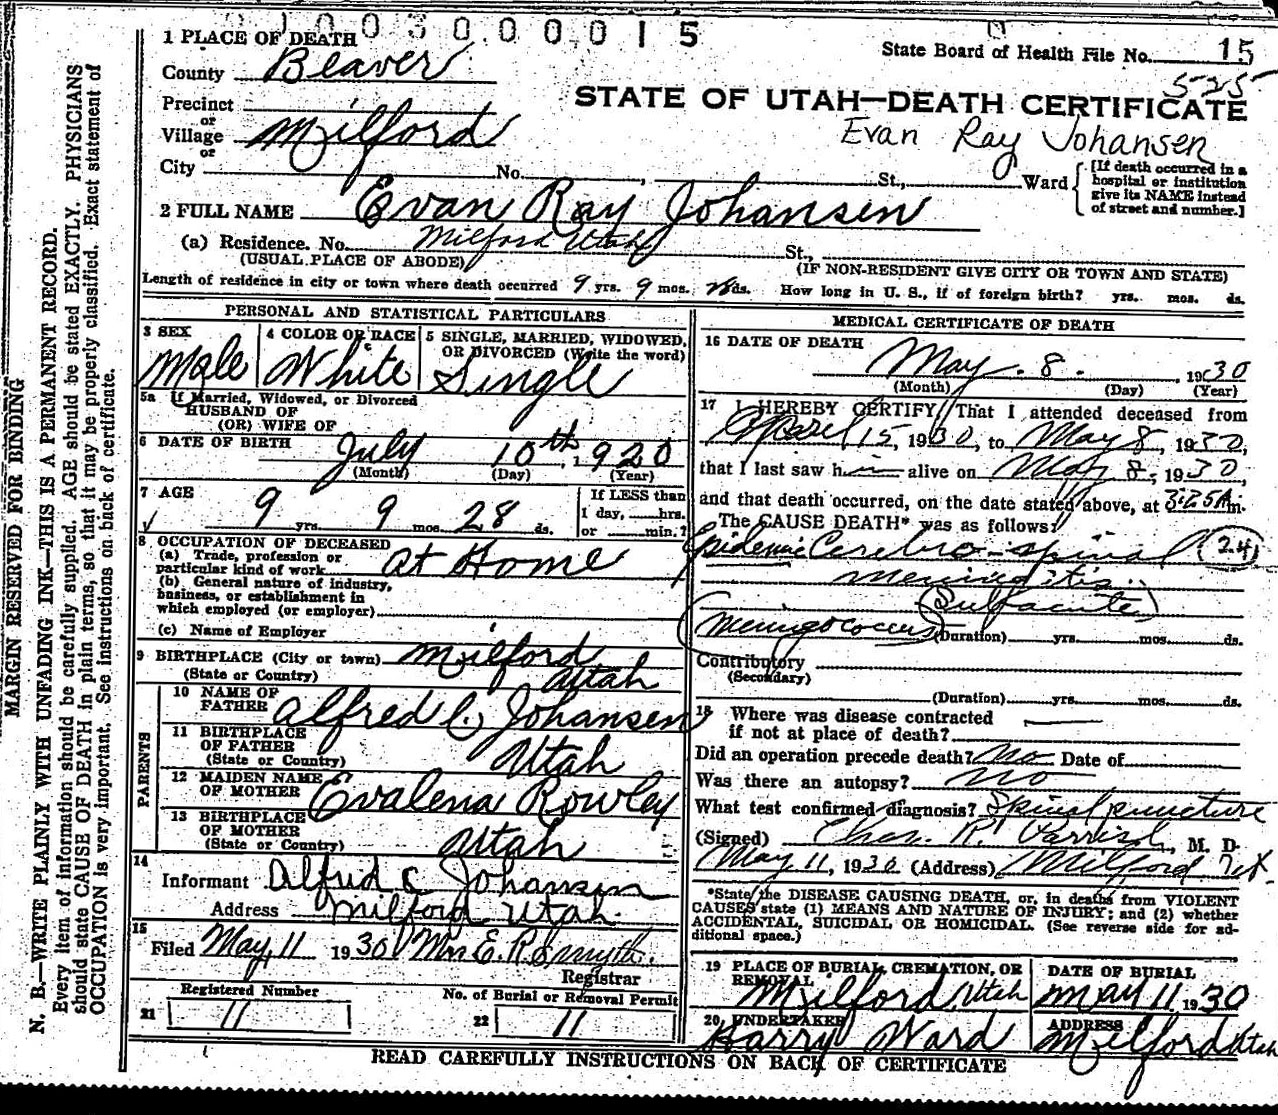 0 1 0 0 3 0 0 0 0 1 5
1 PLACE OF DEATH
State Board of Health File No. 15
County Beaver
525
STATE OF UTAH—DEATH CERTIFICATE
Precinct
or
Village Milford
Evan Ray Johansen
or
City No. , St., Ward
[If death occurred in a
hospital or institution
give its NAME instead
of street and number.]
2 FULL NAME Evan Ray Johansen
(a) Residence. No. Milford Utah St.,
(USUAL PLACE OF ABODE)
(IF NON-RESIDENT GIVE CITY OR TOWN AND STATE)
Length of residence in city or town where death occurred 9 yrs. 9 mos. 28 ds. How long in U. S., if of foreign birth? yrs. mos. ds.
PERSONAL AND STATISTICAL PARTICULARS
3 SEX
Male
4 COLOR OR RACE
White
5 SINGLE, MARRIED, WIDOWED,
OR DIVORCED (Write the word)
Single
5a If Married, Widowed, or Divorced
HUSBAND OF
(OR) WIFE OF
6 DATE OF BIRTH July 10th, 1920
(Month) (Day) (Year)
7 AGE
9 yrs. 9 mos. 28 ds.
If LESS than
1 day, hrs.
or min.?
8 OCCUPATION OF DECEASED
(a) Trade, profession or
particular kind of work at Home
(b) General nature of industry,
business, or establishment in
which employed (or employer)
(c) Name of Employer
9 BIRTHPLACE (City or town) Milford
(State or Country) Utah
PARENTS
10 NAME OF
FATHER Alfred C. Johansen
11 BIRTHPLACE
OF FATHER
(State or Country) Utah
12 MAIDEN NAME
OF MOTHER Evalena Rowley
13 BIRTHPLACE
OF MOTHER
(State or Country) Utah
14
Informant Alfred C Johansen
Address Milford Utah.
15
Filed May, 11 1930 Mrs E. R. Smyth.
Registrar
Registered Number
21 11
No. of Burial or Removal Permit
22 11
MEDICAL CERTIFICATE OF DEATH
16 DATE OF DEATH
May. 8. , 1930
(Month) (Day) (Year)
17 I HEREBY CERTIFY, That I attended deceased from
April 15, 1930, to May 8, 1930,
that I last saw him alive on May 8, 1930,
and that death occurred, on the date stated above, at 3:25A m.
The CAUSE DEATH* was as follows:
Epidemic Cerebro-spinal (24)
meningitis.
(Subacute)
(Meningococcus) (Duration) yrs. mos. ds.
Contributory
(Secondary)
(Duration) yrs. mos. ds.
18 Where was disease contracted
if not at place of death?
Did an operation precede death? No Date of
Was there an autopsy? no
What test confirmed diagnosis? Spinal puncture
(Signed) Chas. R. Parrish, M. D.
May 11, 1930 (Address) Milford Ut.
*State the DISEASE CAUSING DEATH, or, in deaths from VIOLENT
CAUSES state (1) MEANS AND NATURE OF INJURY; and (2) whether
ACCIDENTAL, SUICIDAL OR HOMICIDAL. (See reverse side for ad-
ditional space.)
19 PLACE OF BURIAL, CREMATION, OR
REMOVAL
Milford, Utah
DATE OF BURIAL
May 11 1930
20, UNDERTAKER
Harry Ward
ADDRESS
Milford Utah
READ CAREFULLY INSTRUCTIONS ON BACK OF CERTIFICATE
MARGIN RESERVED FOR BINDING
N. B.—WRITE PLAINLY WITH UNFADING INK—THIS IS A PERMANENT RECORD.
Every item of information should be carefully supplied. AGE should be stated EXACTLY. PHYSICIANS
should state CAUSE OF DEATH in plain terms, so that it may be properly classified. Exact statement of
OCCUPATION is very important. See instructions on back of certificate.